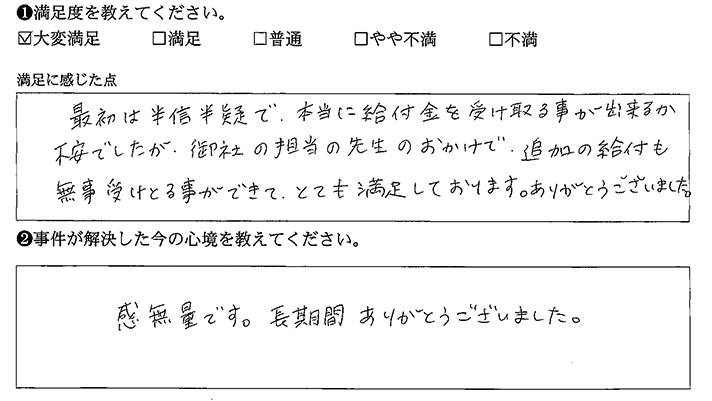 ❶満足度を教えてください。
☑大変満足 □満足 □普通 □やや不満 □不満
満足に感じた点
最初は半信半疑で、本当に給付金を受け取る事が出来るか
不安でしたが、御社の担当の先生のおかげで、追加の給付も
無事受けとる事ができて、とても満足しております。ありがとうございました。
❷事件が解決した今の心境を教えてください。
感無量です。長期間ありがとうございました。